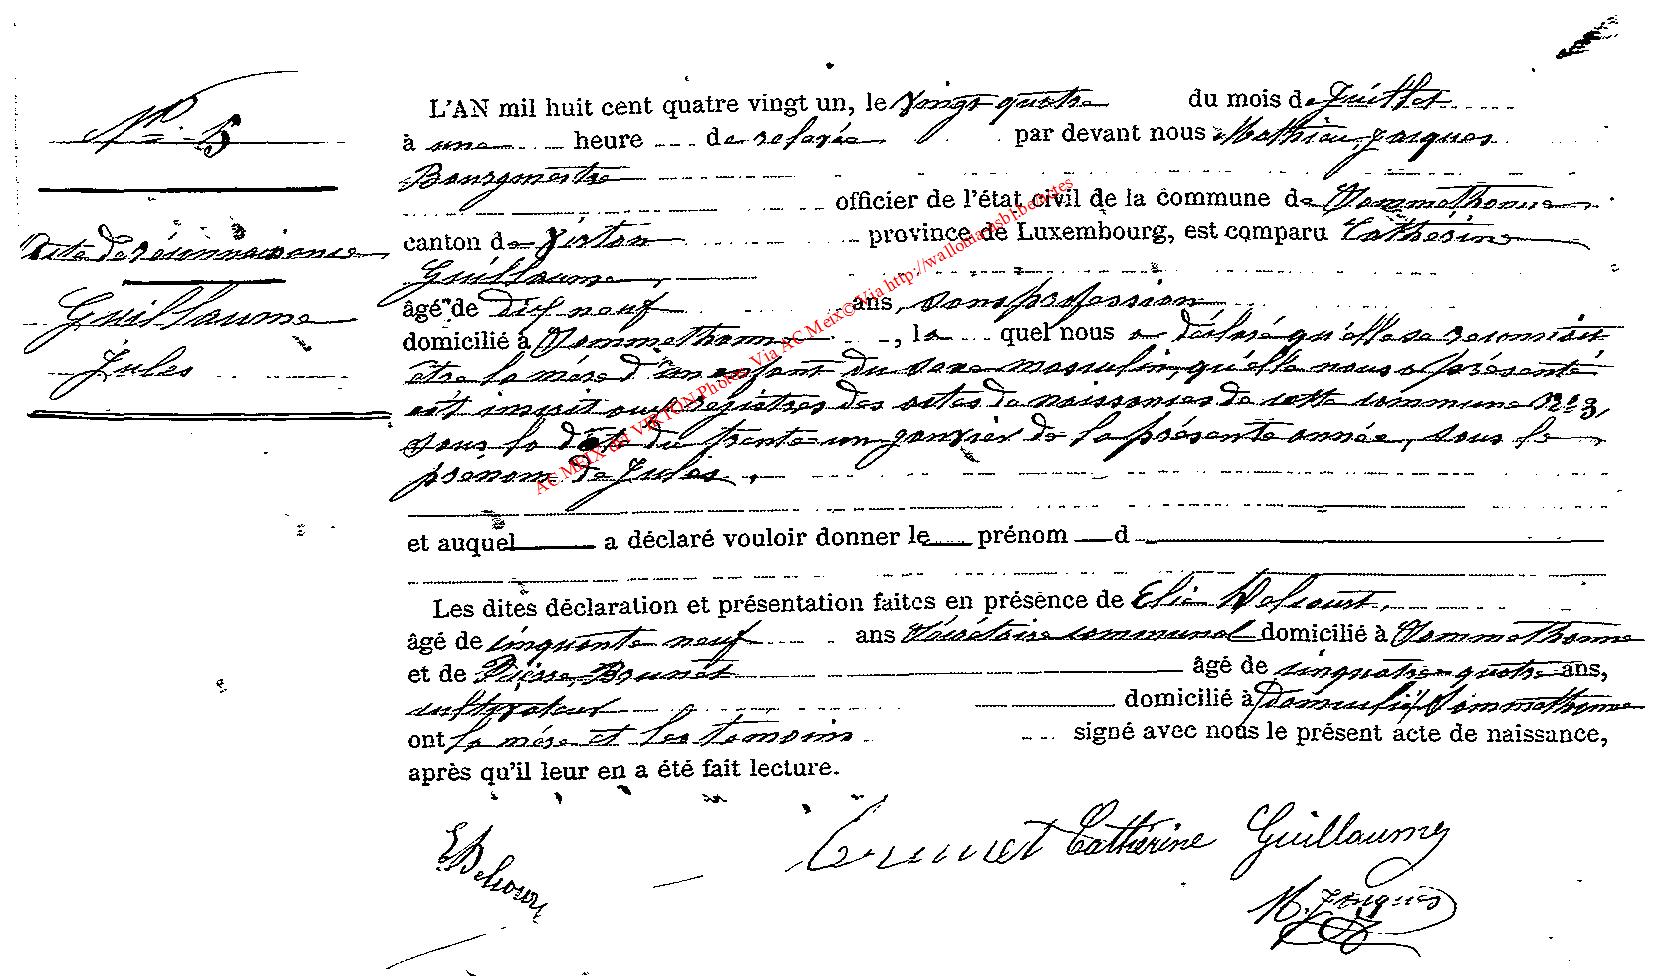 N° 5
Acte de reconnaissance
Guillaume
Jules
L'AN mil huit cent quatre vingt un, le vingt quatre du mois de Juillet
à une heure de relevée par devant nous Mathieu Jacques
Bourgmestre
officier de l'état civil de la commune de Sommethonne
canton de Virton province de Luxembourg, est comparu Catherine
Guillaume,
âgé de dix neuf ans, sans profession
domicilié à Sommethonne, la quel nous a déclaré qu'elle se reconnait
être la mère d'un enfant du sexe masculin, qu'elle nous a présenté
est inscrit aux registres des actes de naissances de cette commune N° 3,
sous la date du trente un janvier de la présente année, sous le
prénom de Jules.
et auquel a déclaré vouloir donner le prénom d
Les dites déclaration et présentation faites en présence de Elie Delcourt,
âgé de cinquante neuf ans Sécrétaire communal domicilié à Sommethonne
et de Pierre Brunet âgé de cinquatre quatre ans,
cultivateur domicilié à domicilié Sommethonne
ont la mère et les témoins signé avec nous le présent acte de naissance,
après qu'il leur en a été fait lecture.
E Delcourt
Brunet Catherine Guillaume
M. Jacques
AC MEIX dvt VIRTON Photos Via AC Meix© Via http://wallonia.asbl.be/actes